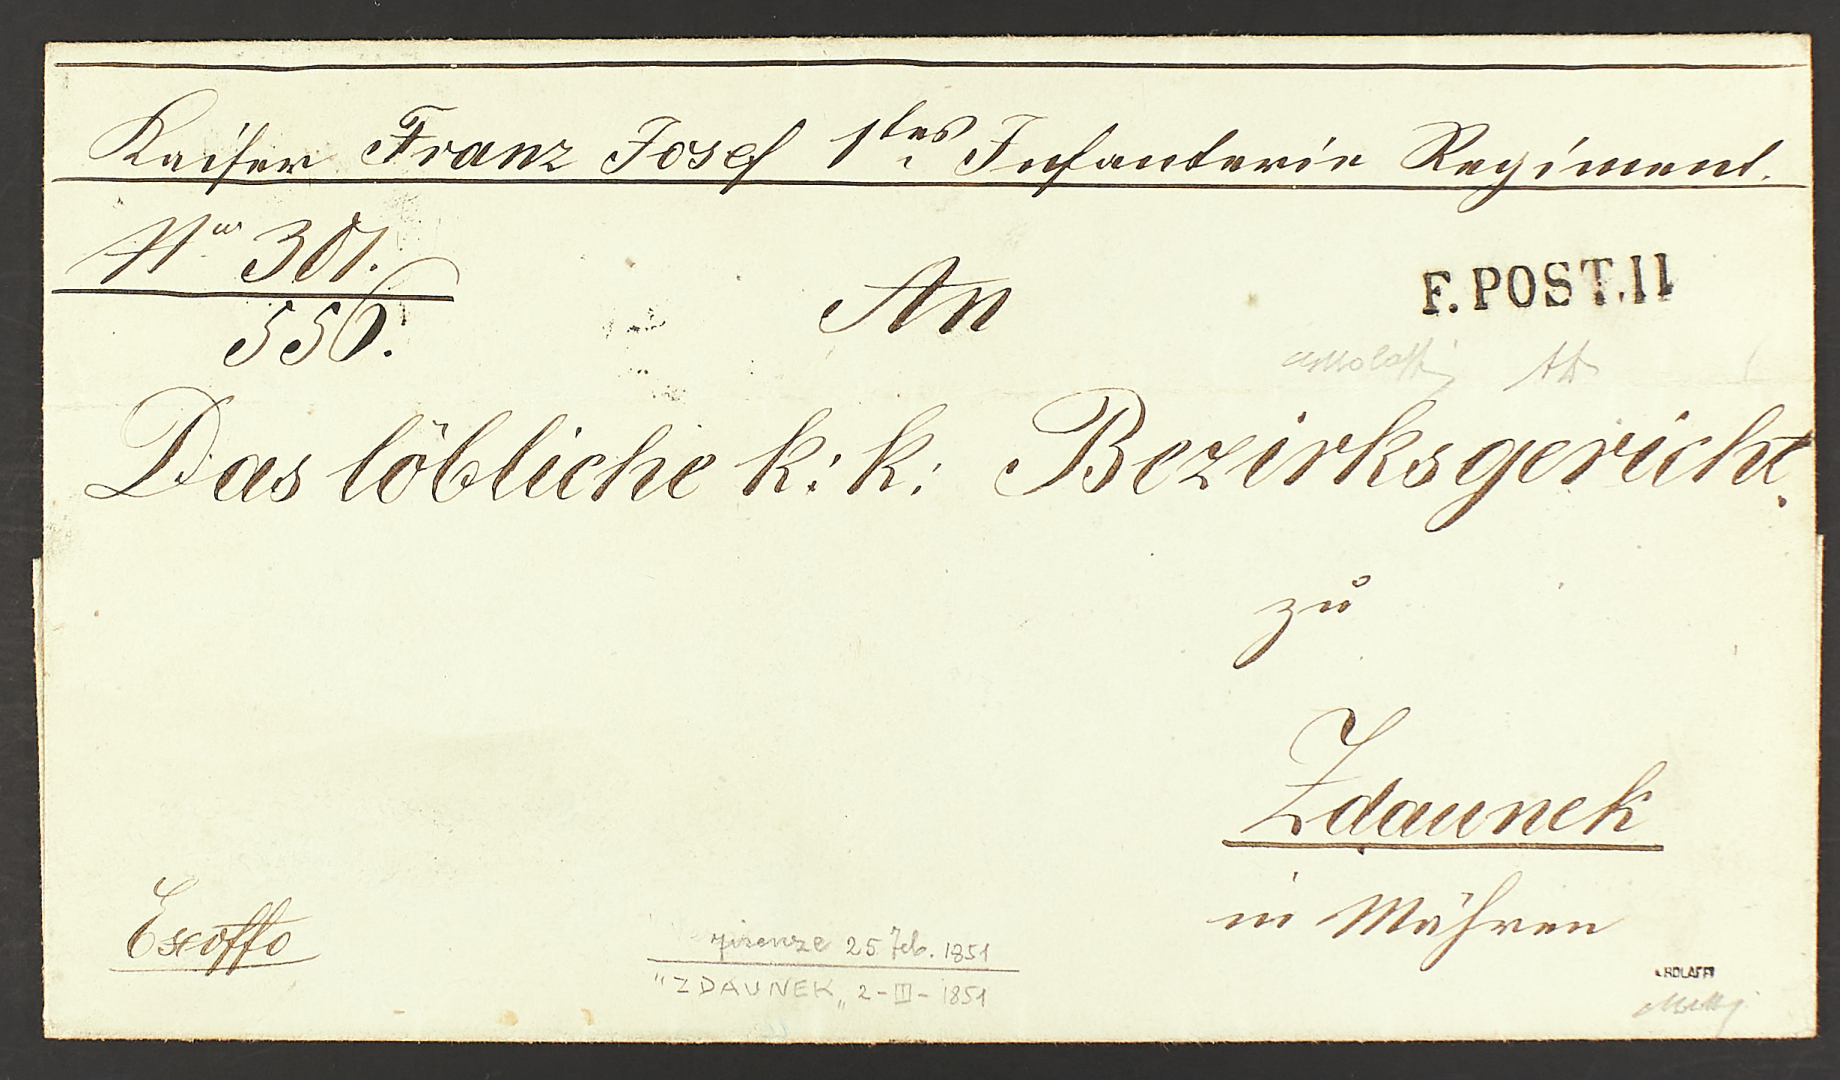 Kaiser Franz Josef 1tes Infanterie Regiment.
Nro 301.
556.
An
F. POST. II
Das löbliche k: k: Bezirksgericht.
zu
Zdaunek
in Mähren
Exoffo
Firenze 25 Feb. 1851
"ZDAUNEK„ 2-III-1851